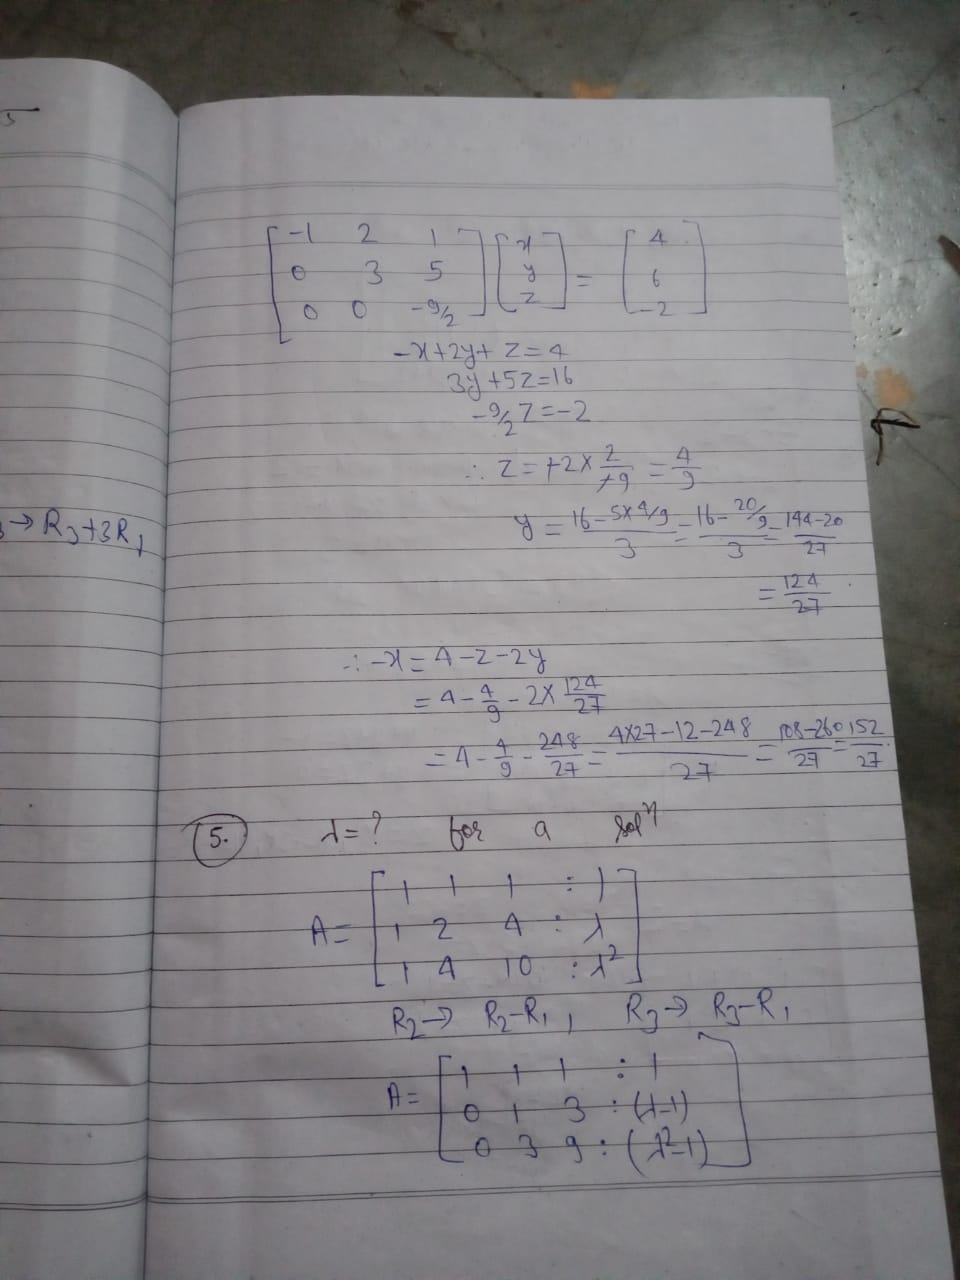 5
→ R₃+3R₁
[ -1 2 1 ] [ x ] = [ 4 ]
[ 0 3 5 ] [ y ] = [ 6 ]
[ 0 0 -9/2 ] [ z ] = [ -2 ]
-x+2y+z=4
3y+5z=16
-9/2 z=-2
∴ z=+2×2/+9 = 4/9
y = (16-5×4/9)/3 = (16-20/9)/3 = (144-20)/27
= 124/27
∴ -x = 4-z-2y
= 4-4/9-2×124/27
= 4-4/9-248/27 = (4×27-12-248)/27 = (108-260)/27 = 152/27
5. λ=? for a solⁿ
A= [ 1 1 1 : 1 ]
[ 1 2 4 : λ ]
[ 1 4 10 : λ² ]
R₂→ R₂-R₁, R₃→ R₃-R₁
A= [ 1 1 1 : 1 ]
[ 0 1 3 : (λ-1) ]
[ 0 3 9 : (λ²-1) ]